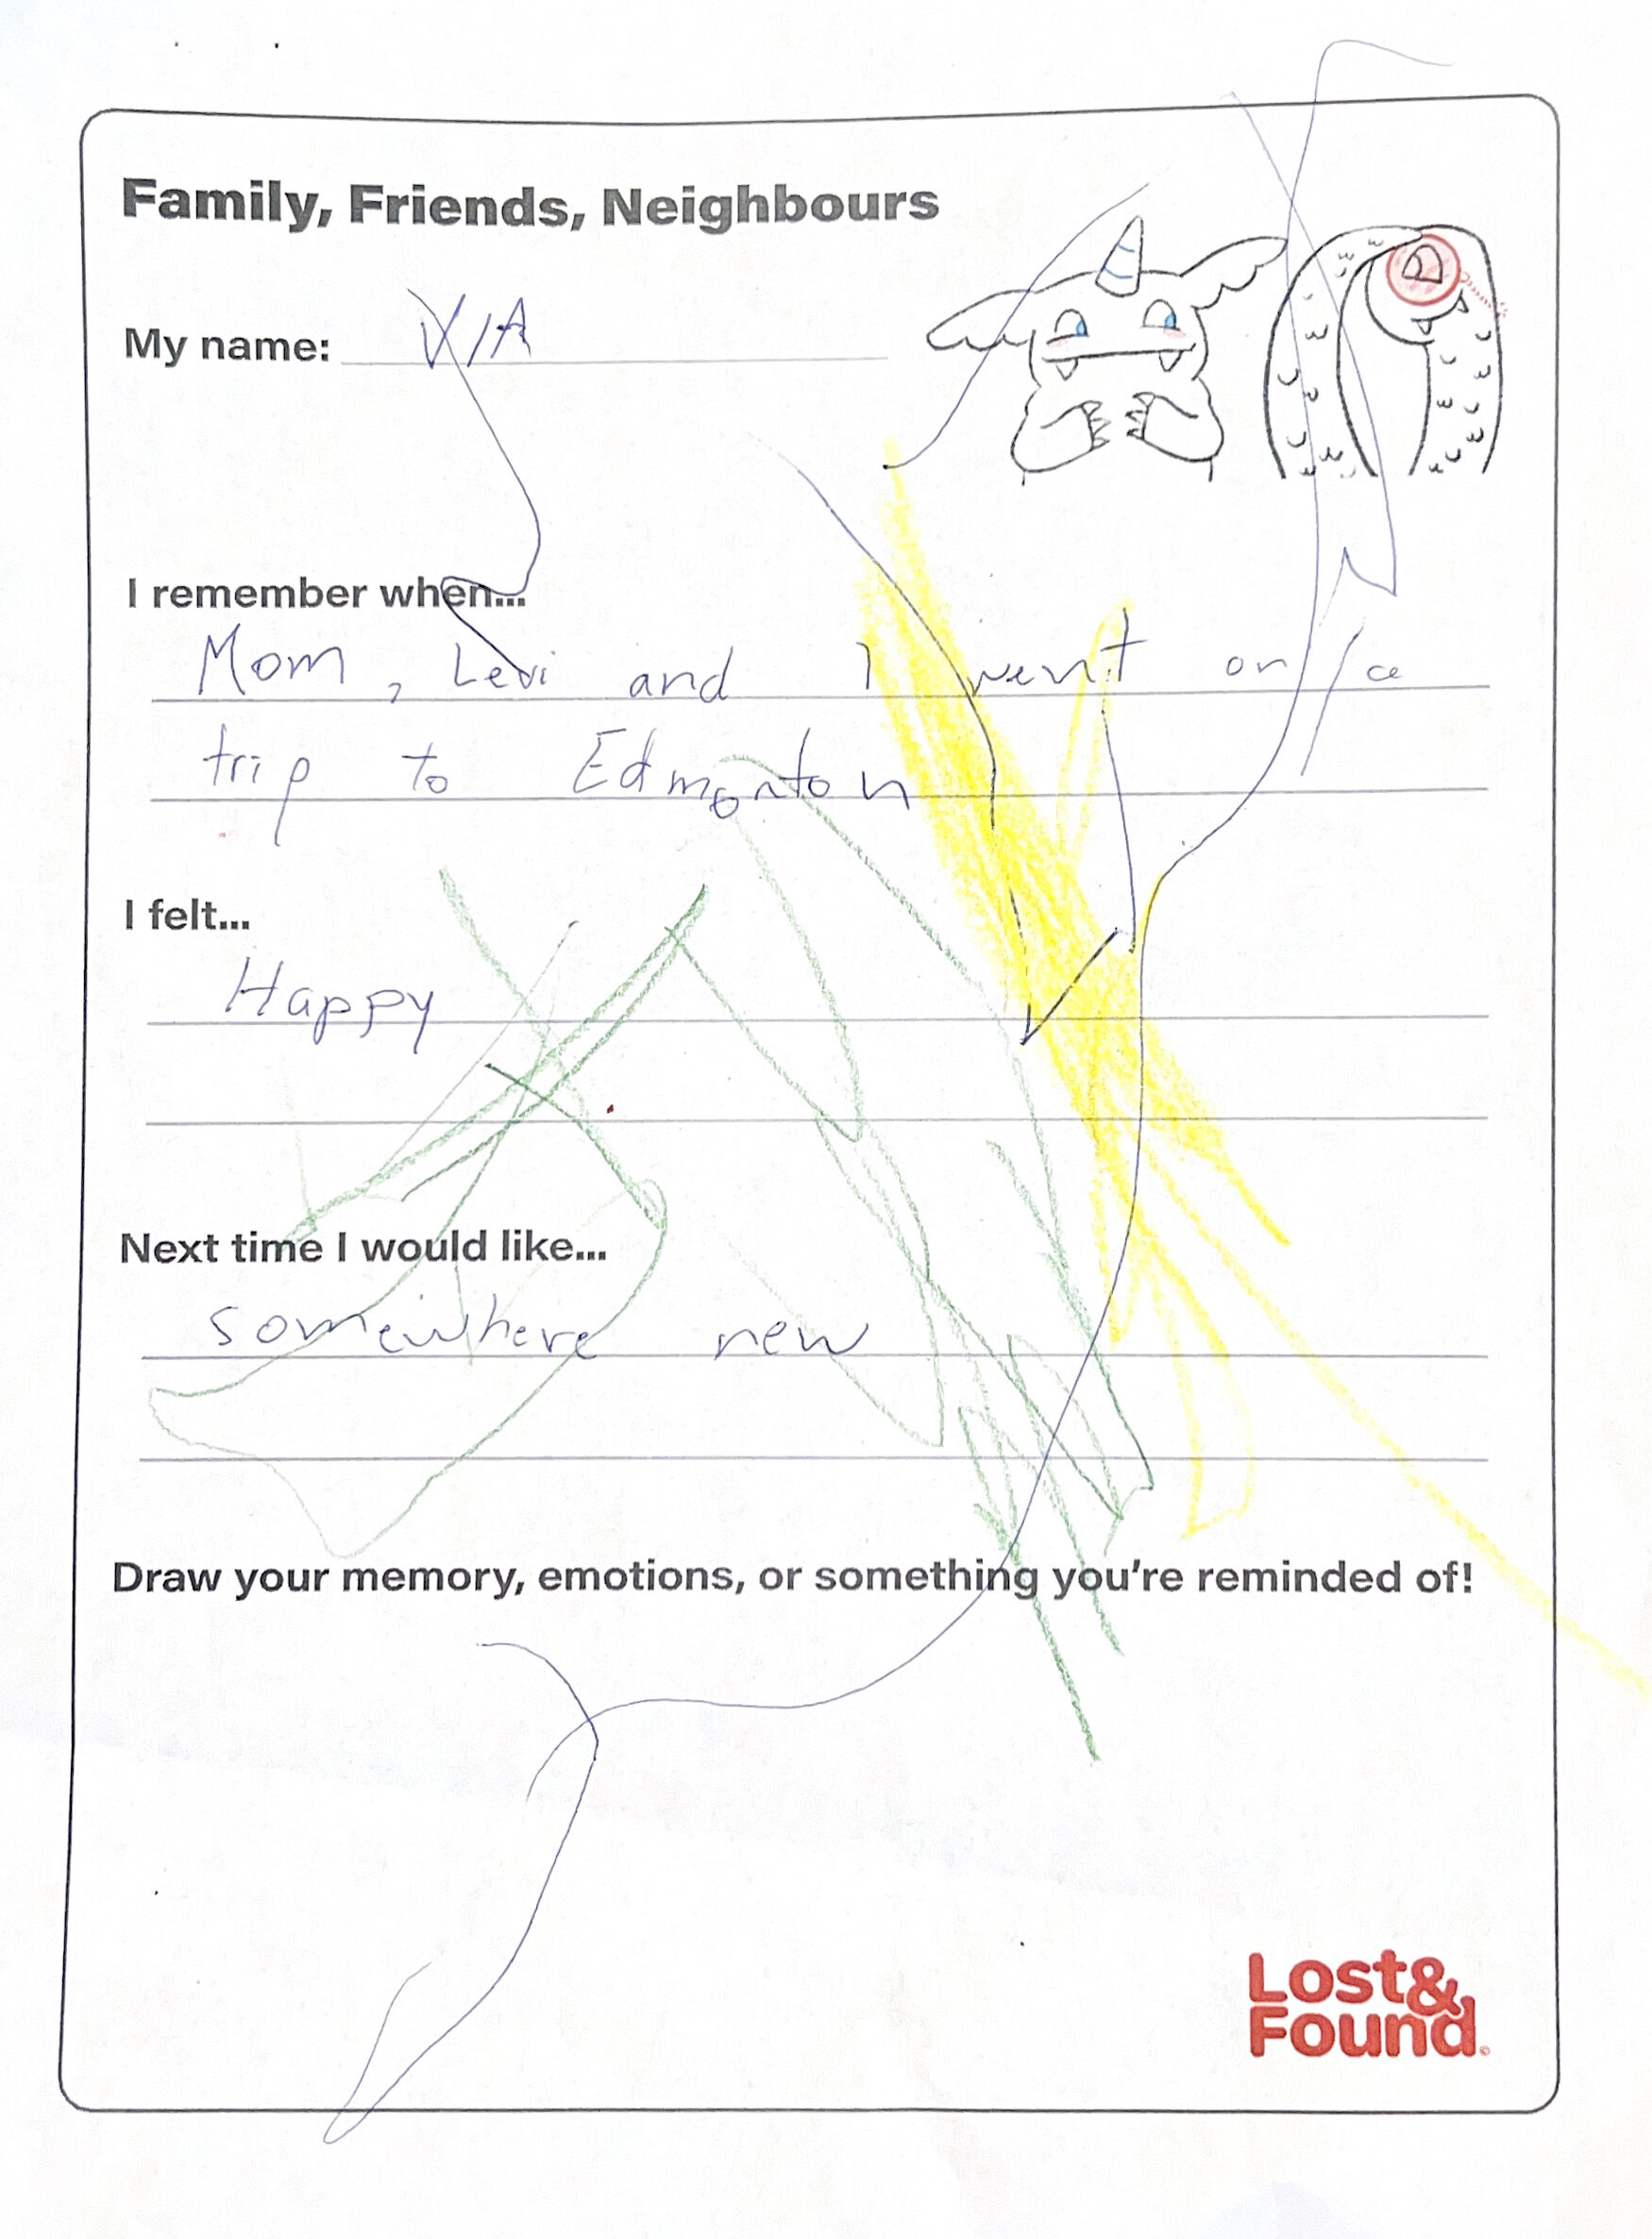 Family, Friends, Neighbours
My name: VIA
I remember when...
Mom, Levi and I went on a
trip to Edmonton
I felt...
Happy
Next time I would like...
somewhere new
Draw your memory, emotions, or something you're reminded of!
Lost&
Found